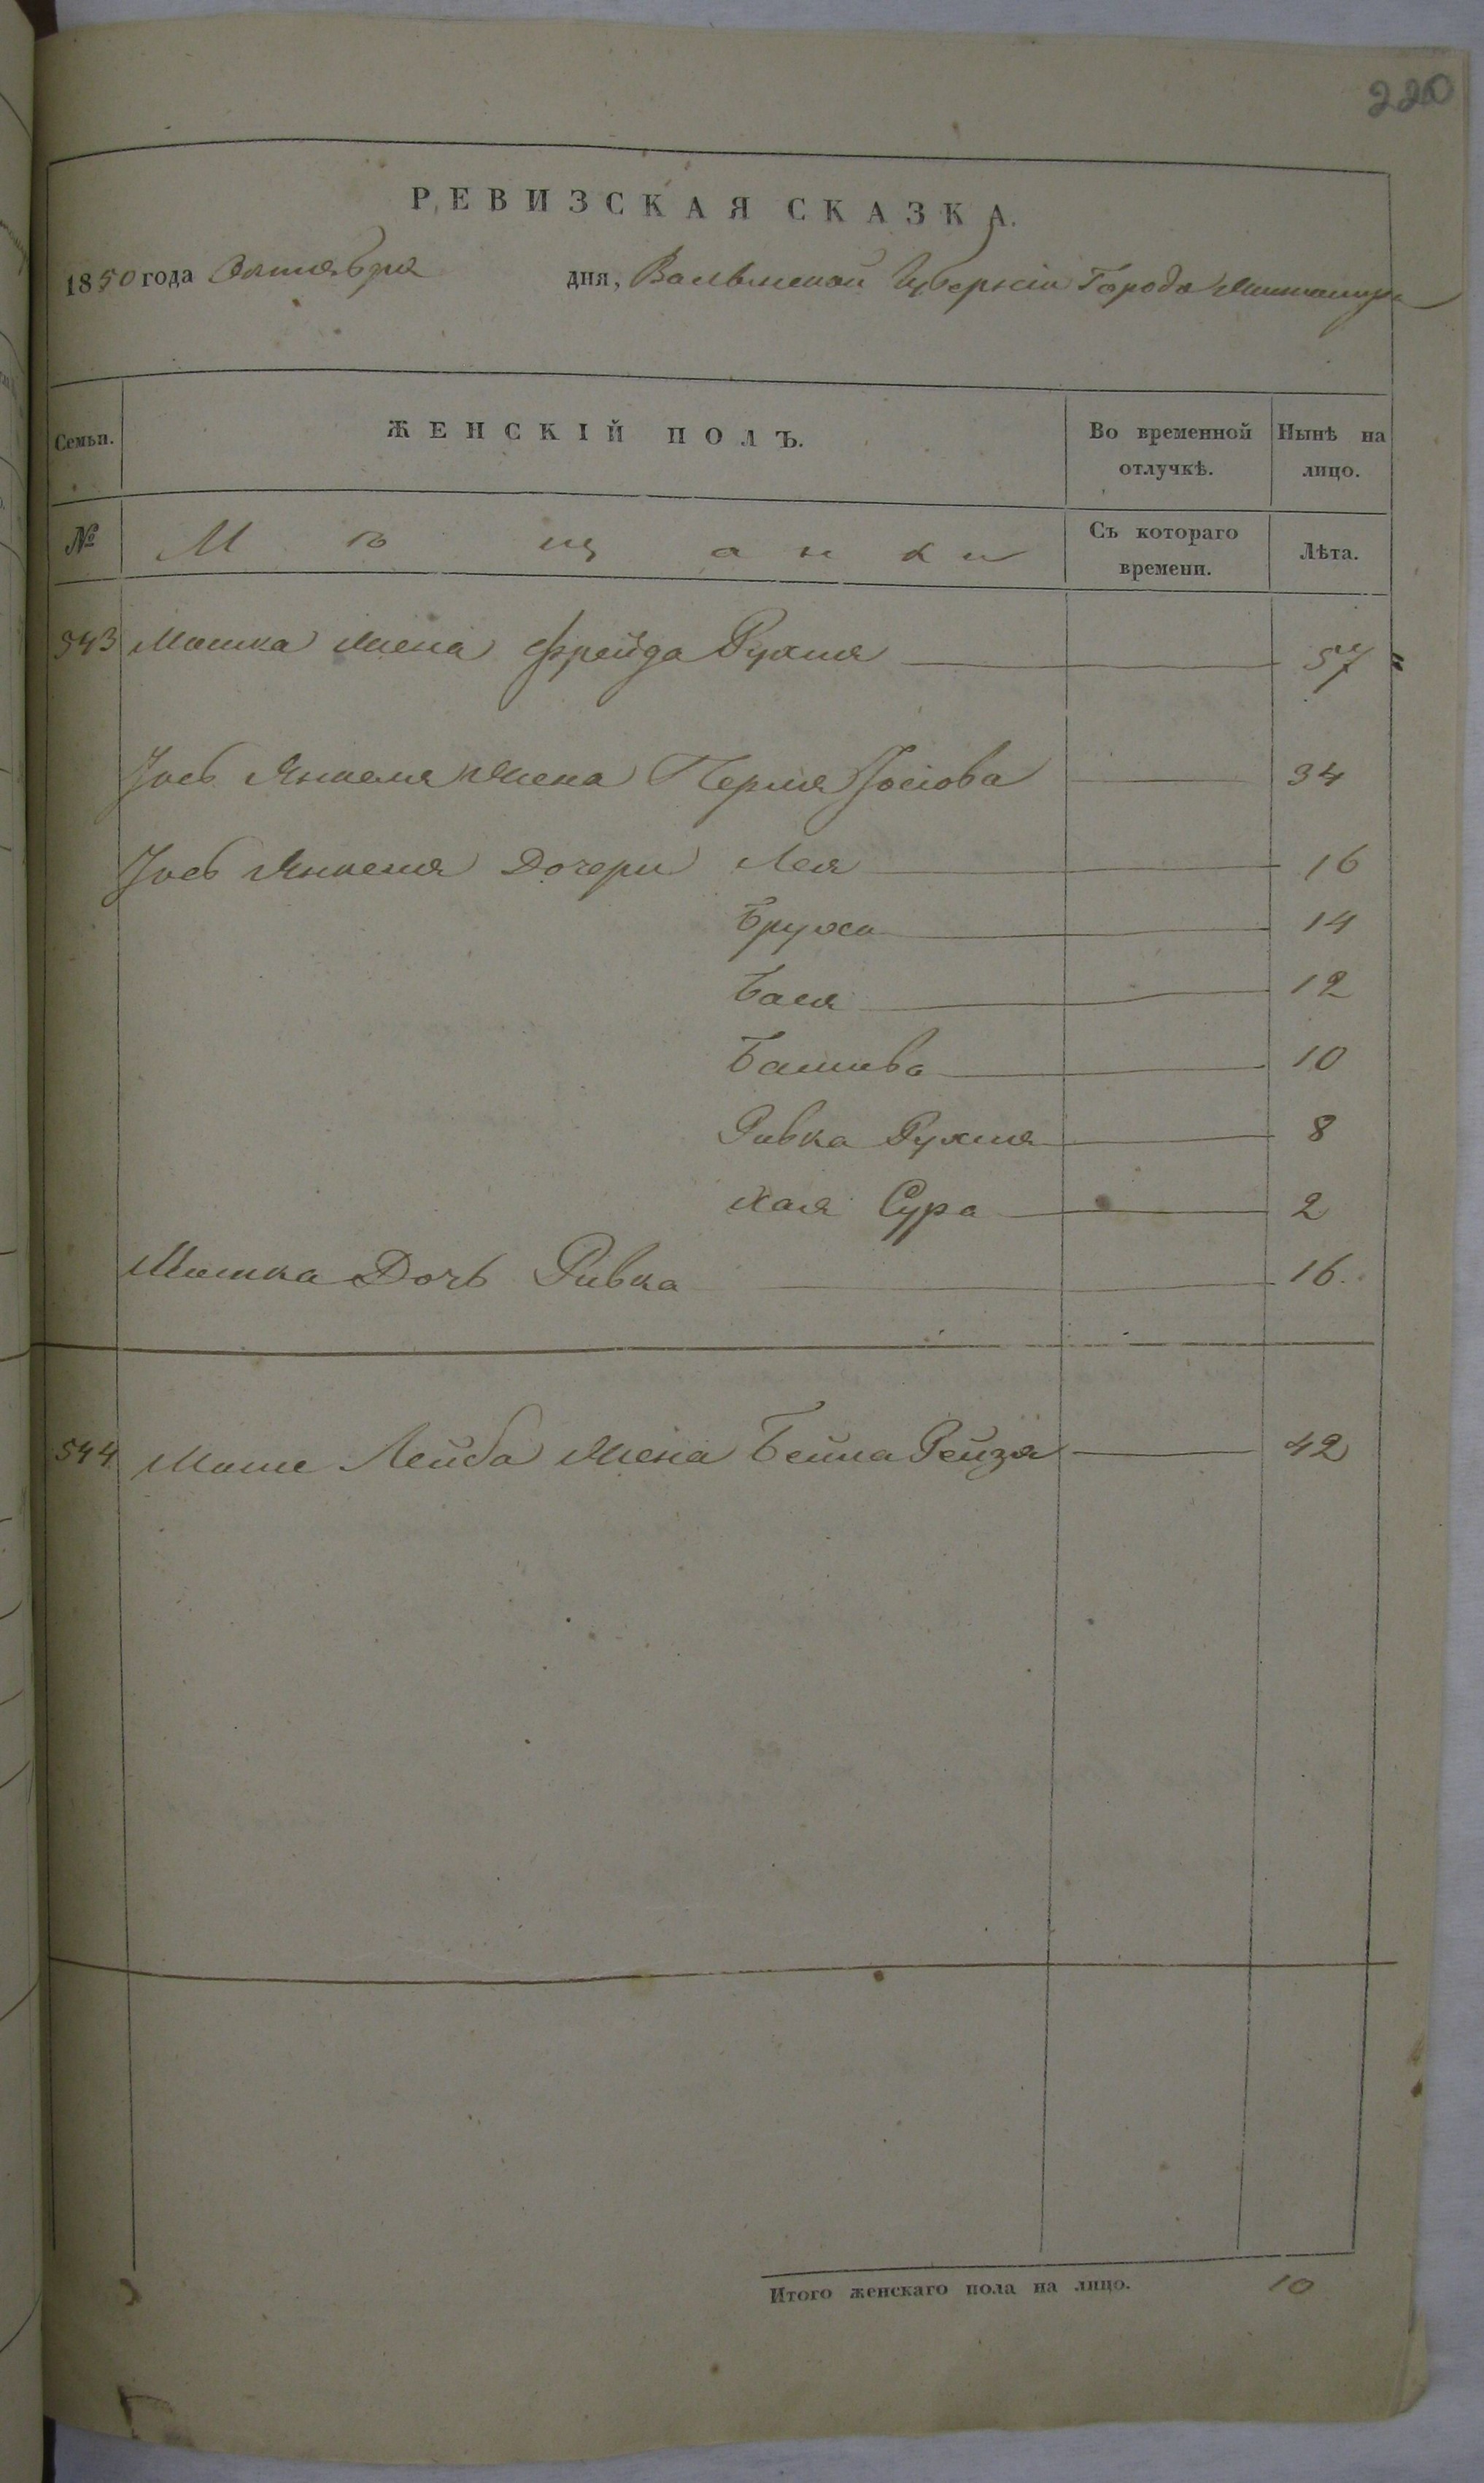 220
РЕВИЗСКАЯ СКАЗКА.
1850 года Октября дня, Волынской Губернiи Города Житомира
Семьи. ЖЕНСКIЙ ПОЛЪ. Во временной отлучкѣ. Нынѣ на лицо.
№ Мѣщанки Съ котораго времени. Лѣта.
543 Мошка жена Фрейда Рухля 57
Iось Янкеля жена Перля Iосiова 34
Iось Янкеля Дочери Лея 16
Бруха 14
Бася 12
Башива 10
Ривка Рухля 8
Хая Сура 2
Мошка Дочь Ривка 16.
544 Моше Лейба жена Бейла Рейзя 42
Итого женскаго пола на лицо. 10